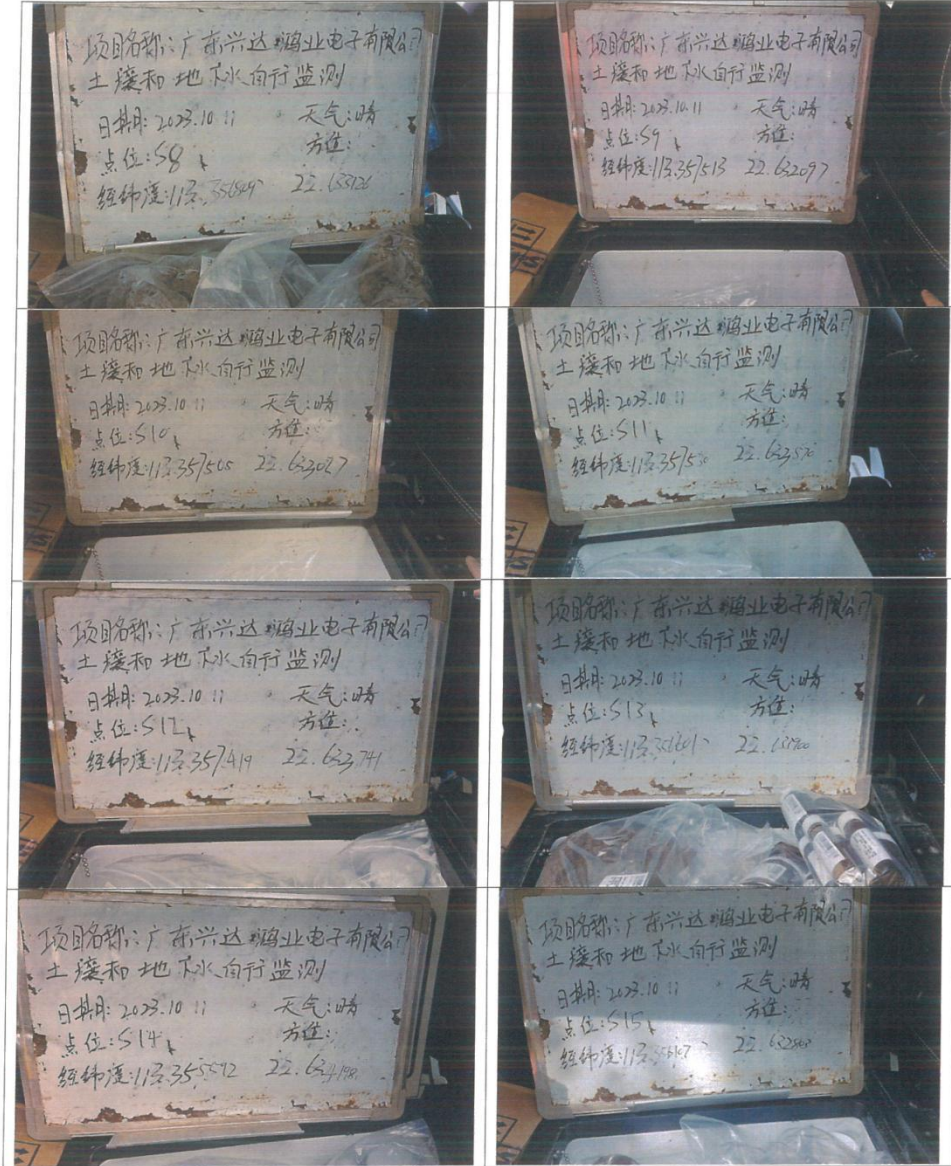 项目名称:广东兴达鸿业电子有限公司
土壤和地下水自行监测
日期:2023.10.11 天气:晴
点位:S8 方位:
经纬度:113.356849 22.633126
项目名称:广东兴达鸿业电子有限公司
土壤和地下水自行监测
日期:2023.10.11 天气:晴
点位:S9 方位:
经纬度:113.357513 22.632097
项目名称:广东兴达鸿业电子有限公司
土壤和地下水自行监测
日期:2023.10.11 天气:晴
点位:S10 方位:
经纬度:113.357505 22.633027
项目名称:广东兴达鸿业电子有限公司
土壤和地下水自行监测
日期:2023.10.11 天气:晴
点位:S11 方位:
经纬度:
项目名称:广东兴达鸿业电子有限公司
土壤和地下水自行监测
日期:2023.10.11 天气:晴
点位:S12 方位:
经纬度:113.357419 22.633741
项目名称:广东兴达鸿业电子有限公司
土壤和地下水自行监测
日期:2023.10.11 天气:晴
点位:S13 方位:
经纬度:
项目名称:广东兴达鸿业电子有限公司
土壤和地下水自行监测
日期:2023.10.11 天气:晴
点位:S14 方位:
经纬度:113.355592 22.634198
项目名称:广东兴达鸿业电子有限公司
土壤和地下水自行监测
日期:2023.10.11 天气:晴
点位:S15 方位:
经纬度: